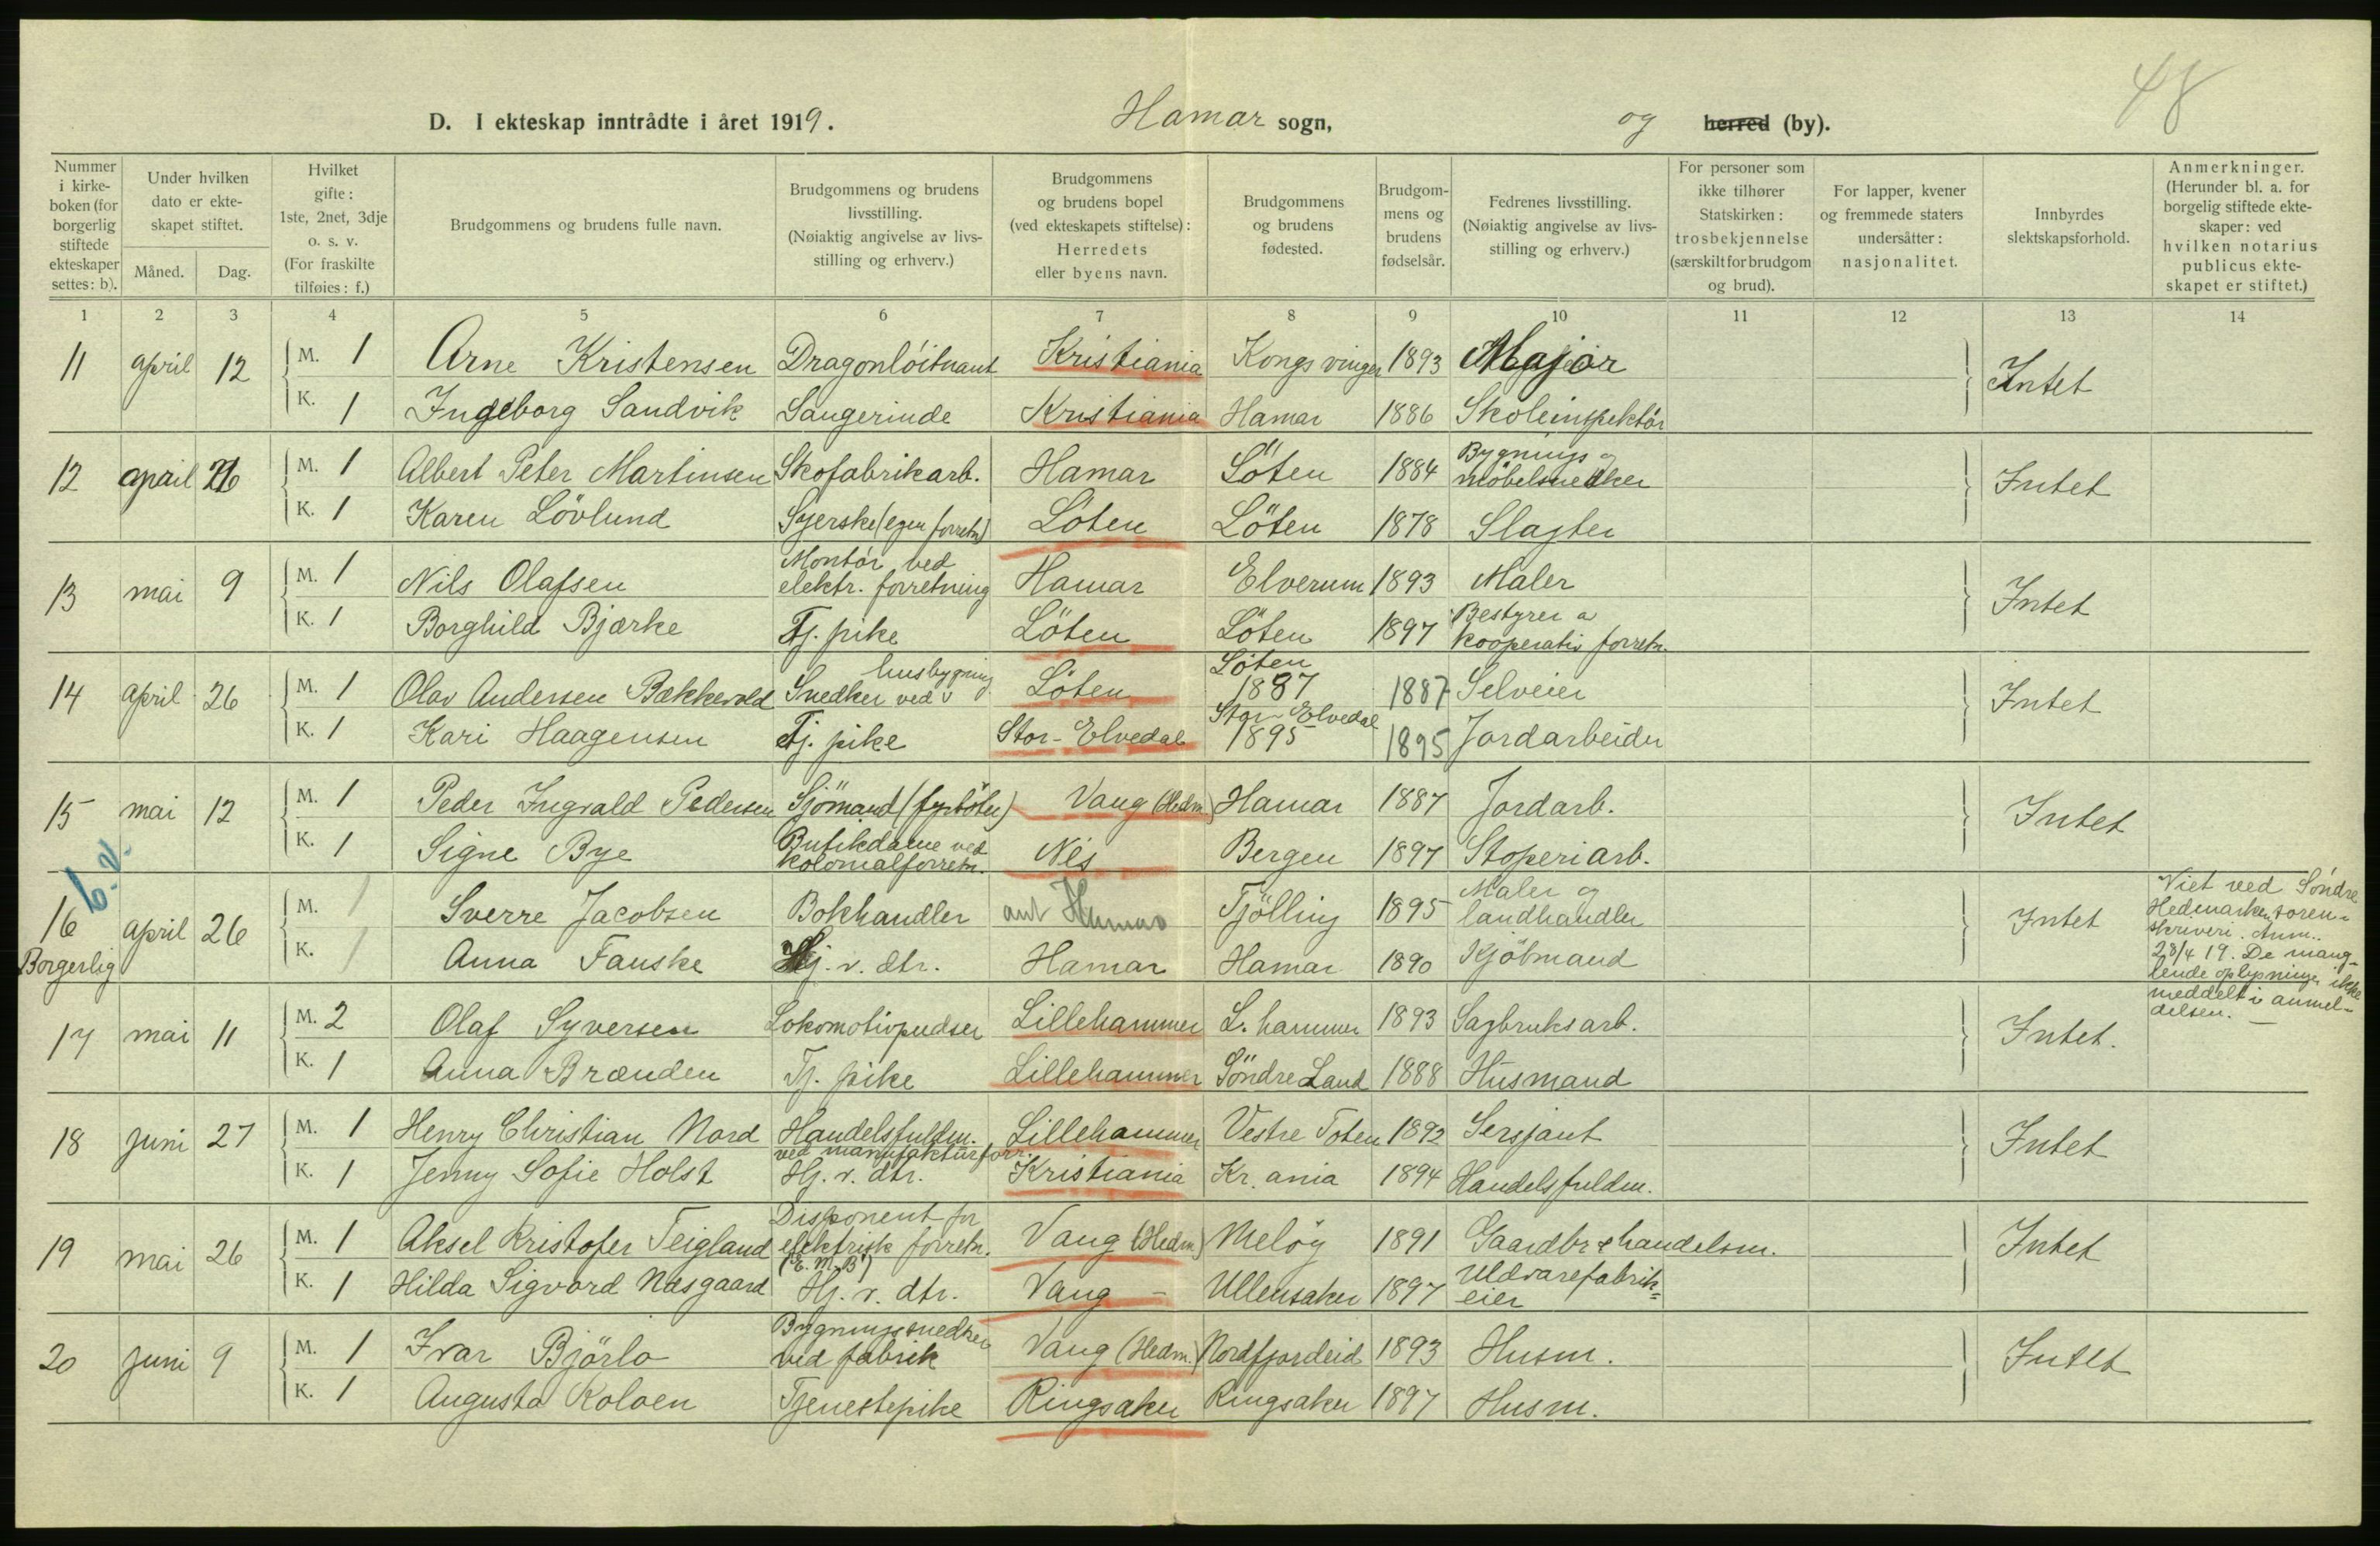 48
D. I ekteskap inntrådte i året 1919. Hamar sogn, og herred (by).
Nummer i kirkeboken (for borgerlig stiftede ekteskaper settes: b).
Under hvilken dato er ekteskapet stiftet.
Måned. Dag.
Hvilket gifte: 1ste, 2net, 3dje o. s. v. (For fraskilte tilføies: f.)
Brudgommens og brudens fulle navn.
Brudgommens og brudens livsstilling. (Nøiaktig angivelse av livsstilling og erhverv.)
Brudgommens og brudens bopel (ved ekteskapets stiftelse): Herredets eller byens navn.
Brudgommens og brudens fødested.
Brudgommens og brudens fødselsår.
Fedrenes livsstilling. (Nøiaktig angivelse av livsstilling og erhverv.)
For personer som ikke tilhører Statskirken: trosbekjennelse (særskilt for brudgom og brud).
For lapper, kvener og fremmede staters undersåtter: nasjonalitet.
Innbyrdes slektskapsforhold.
Anmerkninger. (Herunder bl. a. for borgelig stiftede ekteskaper: ved hvilken notarius publicus ekteskapet er stiftet.)
1 2 3 4 5 6 7 8 9 10 11 12 13 14
11 april 12 M. 1 Arne Kristensen Dragonlöitnant Kristiania Kongsvinger 1893 Major Intet
K. 1 Ingeborg Sandvik Sangerinde Kristiania Hamar 1886 Skoleinspektör
12 april 26 M. 1 Albert Peter Martinsen Skofabrikarb. Hamar Löten 1884 Bygnings og möbelsnedker Intet
K. 1 Karen Lövlund Syerske (egen forretn) Löten Löten 1878 Slagter
13 mai 9 M. 1 Nils Olafsen Montör ved elektr. forretning Hamar Elverum 1893 Maler Intet
K. 1 Borghild Bjærke Tj. pike Löten Löten 1897 Bestyrer a kooperativ forretn.
14 april 26 M. 1 Olav Andersen Bækkevold Snedker ved husbygning Löten Löten 1887 1887 Selveier Intet
K. 1 Kari Haagensen Tj. pike Stor-Elvedal Stor-Elvedal 1895 1895 Jordarbeider
15 mai 12 M. 1 Peder Ingvald Pedersen Sjömand (fyrböter) Vang (Hedm.) Hamar 1887 Jordarb. Intet
K. 1 Signe Bye Butikdame ved kolonialforretn. Nes Bergen 1897 Stoperiarb.
6.v.
16 Borgerlig april 26 M. 1 Sverre Jacobsen Bokhandler ant Hamar Tjölling 1895 Maler og landhandler Intet
K. 1 Anna Fauske Hj. v. dtr. Hamar Hamar 1890 Kjöbmand
Viet ved Söndre
Hedmarken soren-
skriveri. Anm.
28/4 19. De mang-
lende oplysninger ikke
meddelt i anmel-
delsen.
17 mai 11 M. 2 Olaf Syversen Lokomotivpudser Lillehammer L. hammer 1893 Sagbruksarb. Intet.
K. 1 Anna Brænden Tj. pike Lillehammer Söndre Land 1888 Husmand
18 juni 27 M. 1 Henry Christian Nord Handelsfuldm. ved manufakturforr. Lillehammer Vestre Toten 1892 Sersjant Intet
K. 1 Jenny Sofie Holst Hj. v. dtr. Kristiania Kr. ania 1894 Handelsfuldm.
19 mai 26 M. 1 Aksel Kristofer Teigland Disponent for elektrisk forretn. (E. M. B.) Vang (Hedm) Melöy 1891 Gaardbr & handelsm. Intet
K. 1 Hilda Sigvard Næsgaard Hj. v. dtr. Vang - Ullensaker 1897 Uldvarefabrik=eier
20 juni 9 M. 1 Ivar Björlo Bygningssnedker ved fabrik Vang (Hedm.) Nordfjordeid 1893 Husm. Intet
K. 1 Augusta Koloen Tjenestepike Ringsaker Ringsaker 1897 Husm.